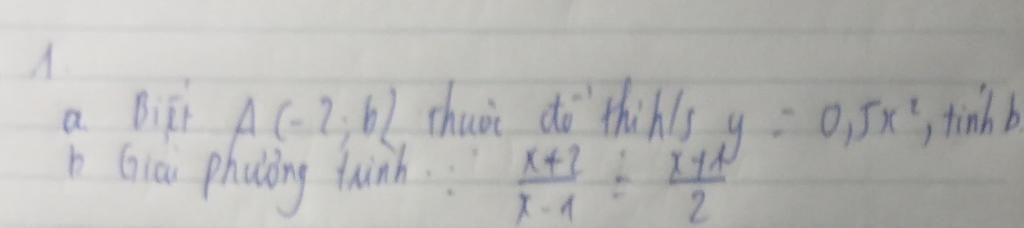 1
a. Biết A(-2; b) thuộc đồ thị h/s y = 0,5x², tính b.
b Giải phương trình: \frac{x+2}{x-1} = \frac{x+1}{2}